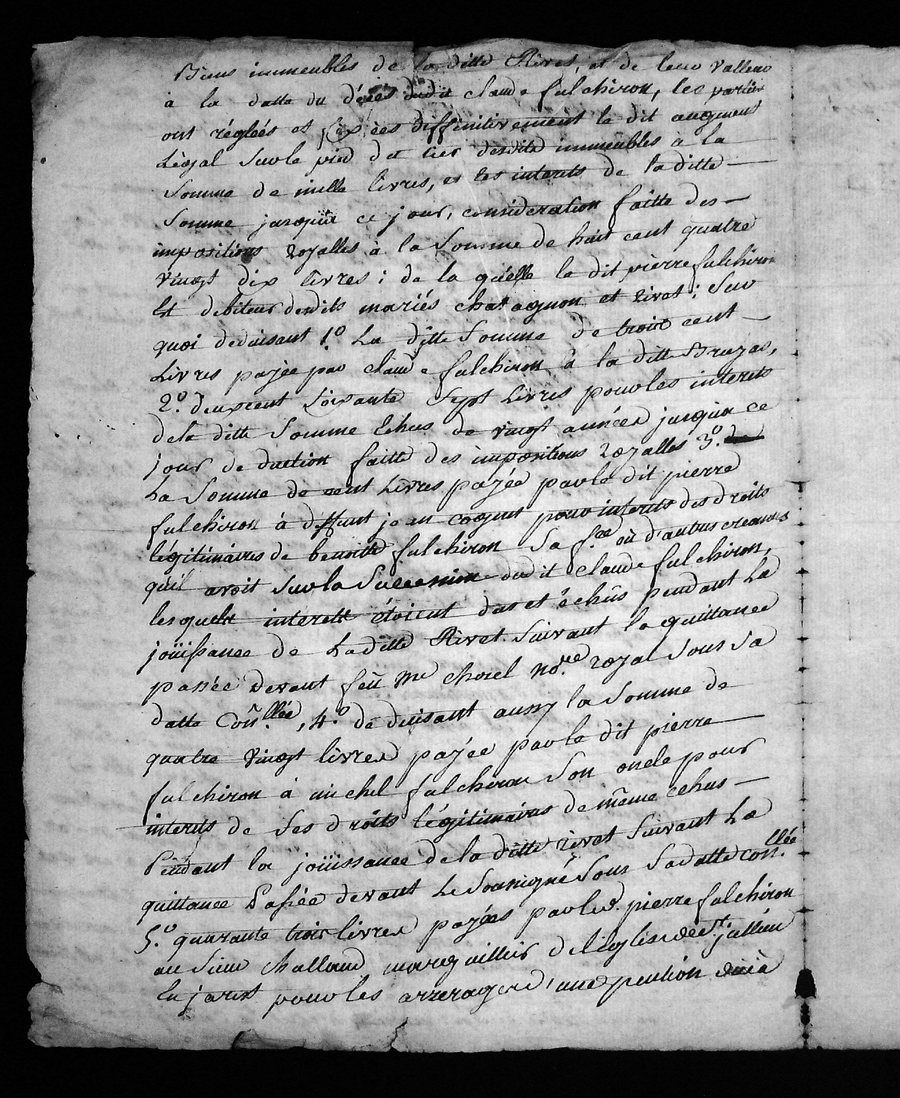 Biens immeubles de la ditte Rivet, et de leur valleur
à la datte du décés dudit claude fulchiron, les parties
ont réglées et fixées diffinitivement le dit augment
Légal sur le pied du tier desdits immeubles à la
Somme de mille livres, et les interets de la ditte
Somme jusquà ce jour, consideration faitte des
impositions royalles à la Somme de huit cent quatre
vingt dix livres; de la quelle le dit pierre fulchiron
Est debiteur desdits mariés chatagnon et rivet; Sur
quoi deduisant 1.º La ditte Somme de trois cent
Livres payée par claude fulchiron à la ditte Bruzas,
2.º deux cent soixante Sept Livres pour les interets
de la ditte Somme Echus de vingt années jusqua ce
jour deduction faitte des impositions royalles 3.º
La Somme de cent Livres payée par le dit pierre
fulchiron à deffunt jean cognet pour interets des droits
légitimaires de benoitte fulchiron Sa f.e ou d'autres creances
quil avoit Sur la Succession dudit claude fulchiron,
lesquels interett étoient dus et échûs pendant La
joüissance de Laditte Rivet Suivant la quittance
passée devant feü Me chorel No.re royal Sous Sa
datte Con.llée, 4.º deduisant aussy la Somme de
quatre vingt livres payée par le dit pierre
fulchiron à michel fulchiron Son oncle pour
interets de Ses droits légitimaires de même echus
Pendant la joüissance de la ditte rivet Suivant La
quittance Passée devant Le Soussigné Sous Sa datte con.llée
5.º quarante trois livres payées par led. pierre fulchiron
au Sieur challand marguillier de l'Eglise de St. jullien
En jarest pour les arrerages d'une pention duë à